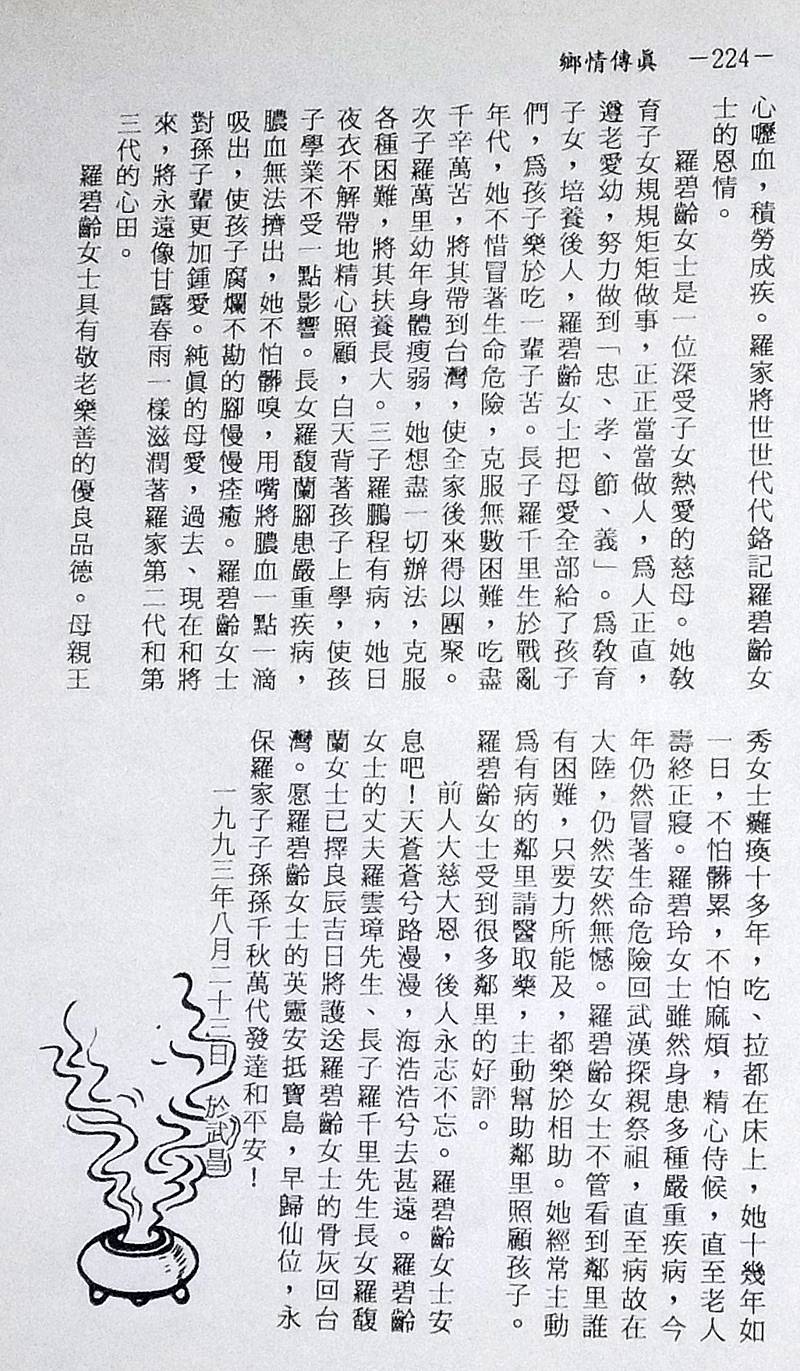 鄉情傳眞 －224－
心嚦血，積勞成疾。羅家將世世代代銘記羅碧齡女
士的恩情。
羅碧齡女士是一位深受子女熱愛的慈母。她教
育子女規規矩矩做事，正正當當做人，爲人正直，
遵老愛幼，努力做到「忠、孝、節、義」。爲教育
子女，培養後人，羅碧齡女士把母愛全部給了孩子
們，爲孩子樂於吃一輩子苦。長子羅千里生於戰亂
年代，她不惜冒著生命危險，克服無數困難，吃盡
千辛萬苦，將其帶到台灣，使全家後來得以團聚。
次子羅萬里幼年身體瘦弱，她想盡一切辦法，克服
各種困難，將其扶養長大。三子羅鵬程有病，她日
夜衣不解帶地精心照顧，白天背著孩子上學，使孩
子學業不受一點影響。長女羅馥蘭腳患嚴重疾病，
膿血無法擠出，她不怕髒嗅，用嘴將膿血一點一滴
吸出，使孩子腐爛不勘的腳慢慢痊癒。羅碧齡女士
對孫子輩更加鍾愛。純眞的母愛，過去、現在和將
來，將永遠像甘露春雨一樣滋潤著羅家第二代和第
三代的心田。
羅碧齡女士具有敬老樂善的優良品德。母親王
秀女士癱瘓十多年，吃、拉都在床上，她十幾年如
一日，不怕髒累，不怕麻煩，精心侍候，直至老人
壽終正寢。羅碧玲女士雖然身患多種嚴重疾病，今
年仍然冒著生命危險回武漢探親祭祖，直至病故在
大陸，仍然安然無憾。羅碧齡女士不管看到鄰里誰
有困難，只要力所能及，都樂於相助。她經常主動
爲有病的鄰里請醫取藥，主動幫助鄰里照顧孩子。
羅碧齡女士受到很多鄰里的好評。
前人大慈大恩，後人永志不忘。羅碧齡女士安
息吧！天蒼蒼兮路漫漫，海浩浩兮去甚遠。羅碧齡
女士的丈夫羅雲璋先生、長子羅千里先生長女羅馥
蘭女士已擇良辰吉日將護送羅碧齡女士的骨灰回台
灣。愿羅碧齡女士的英靈安抵寶島，早歸仙位，永
保羅家子子孫孫千秋萬代發達和平安！
一九九三年八月二十三日 於武昌